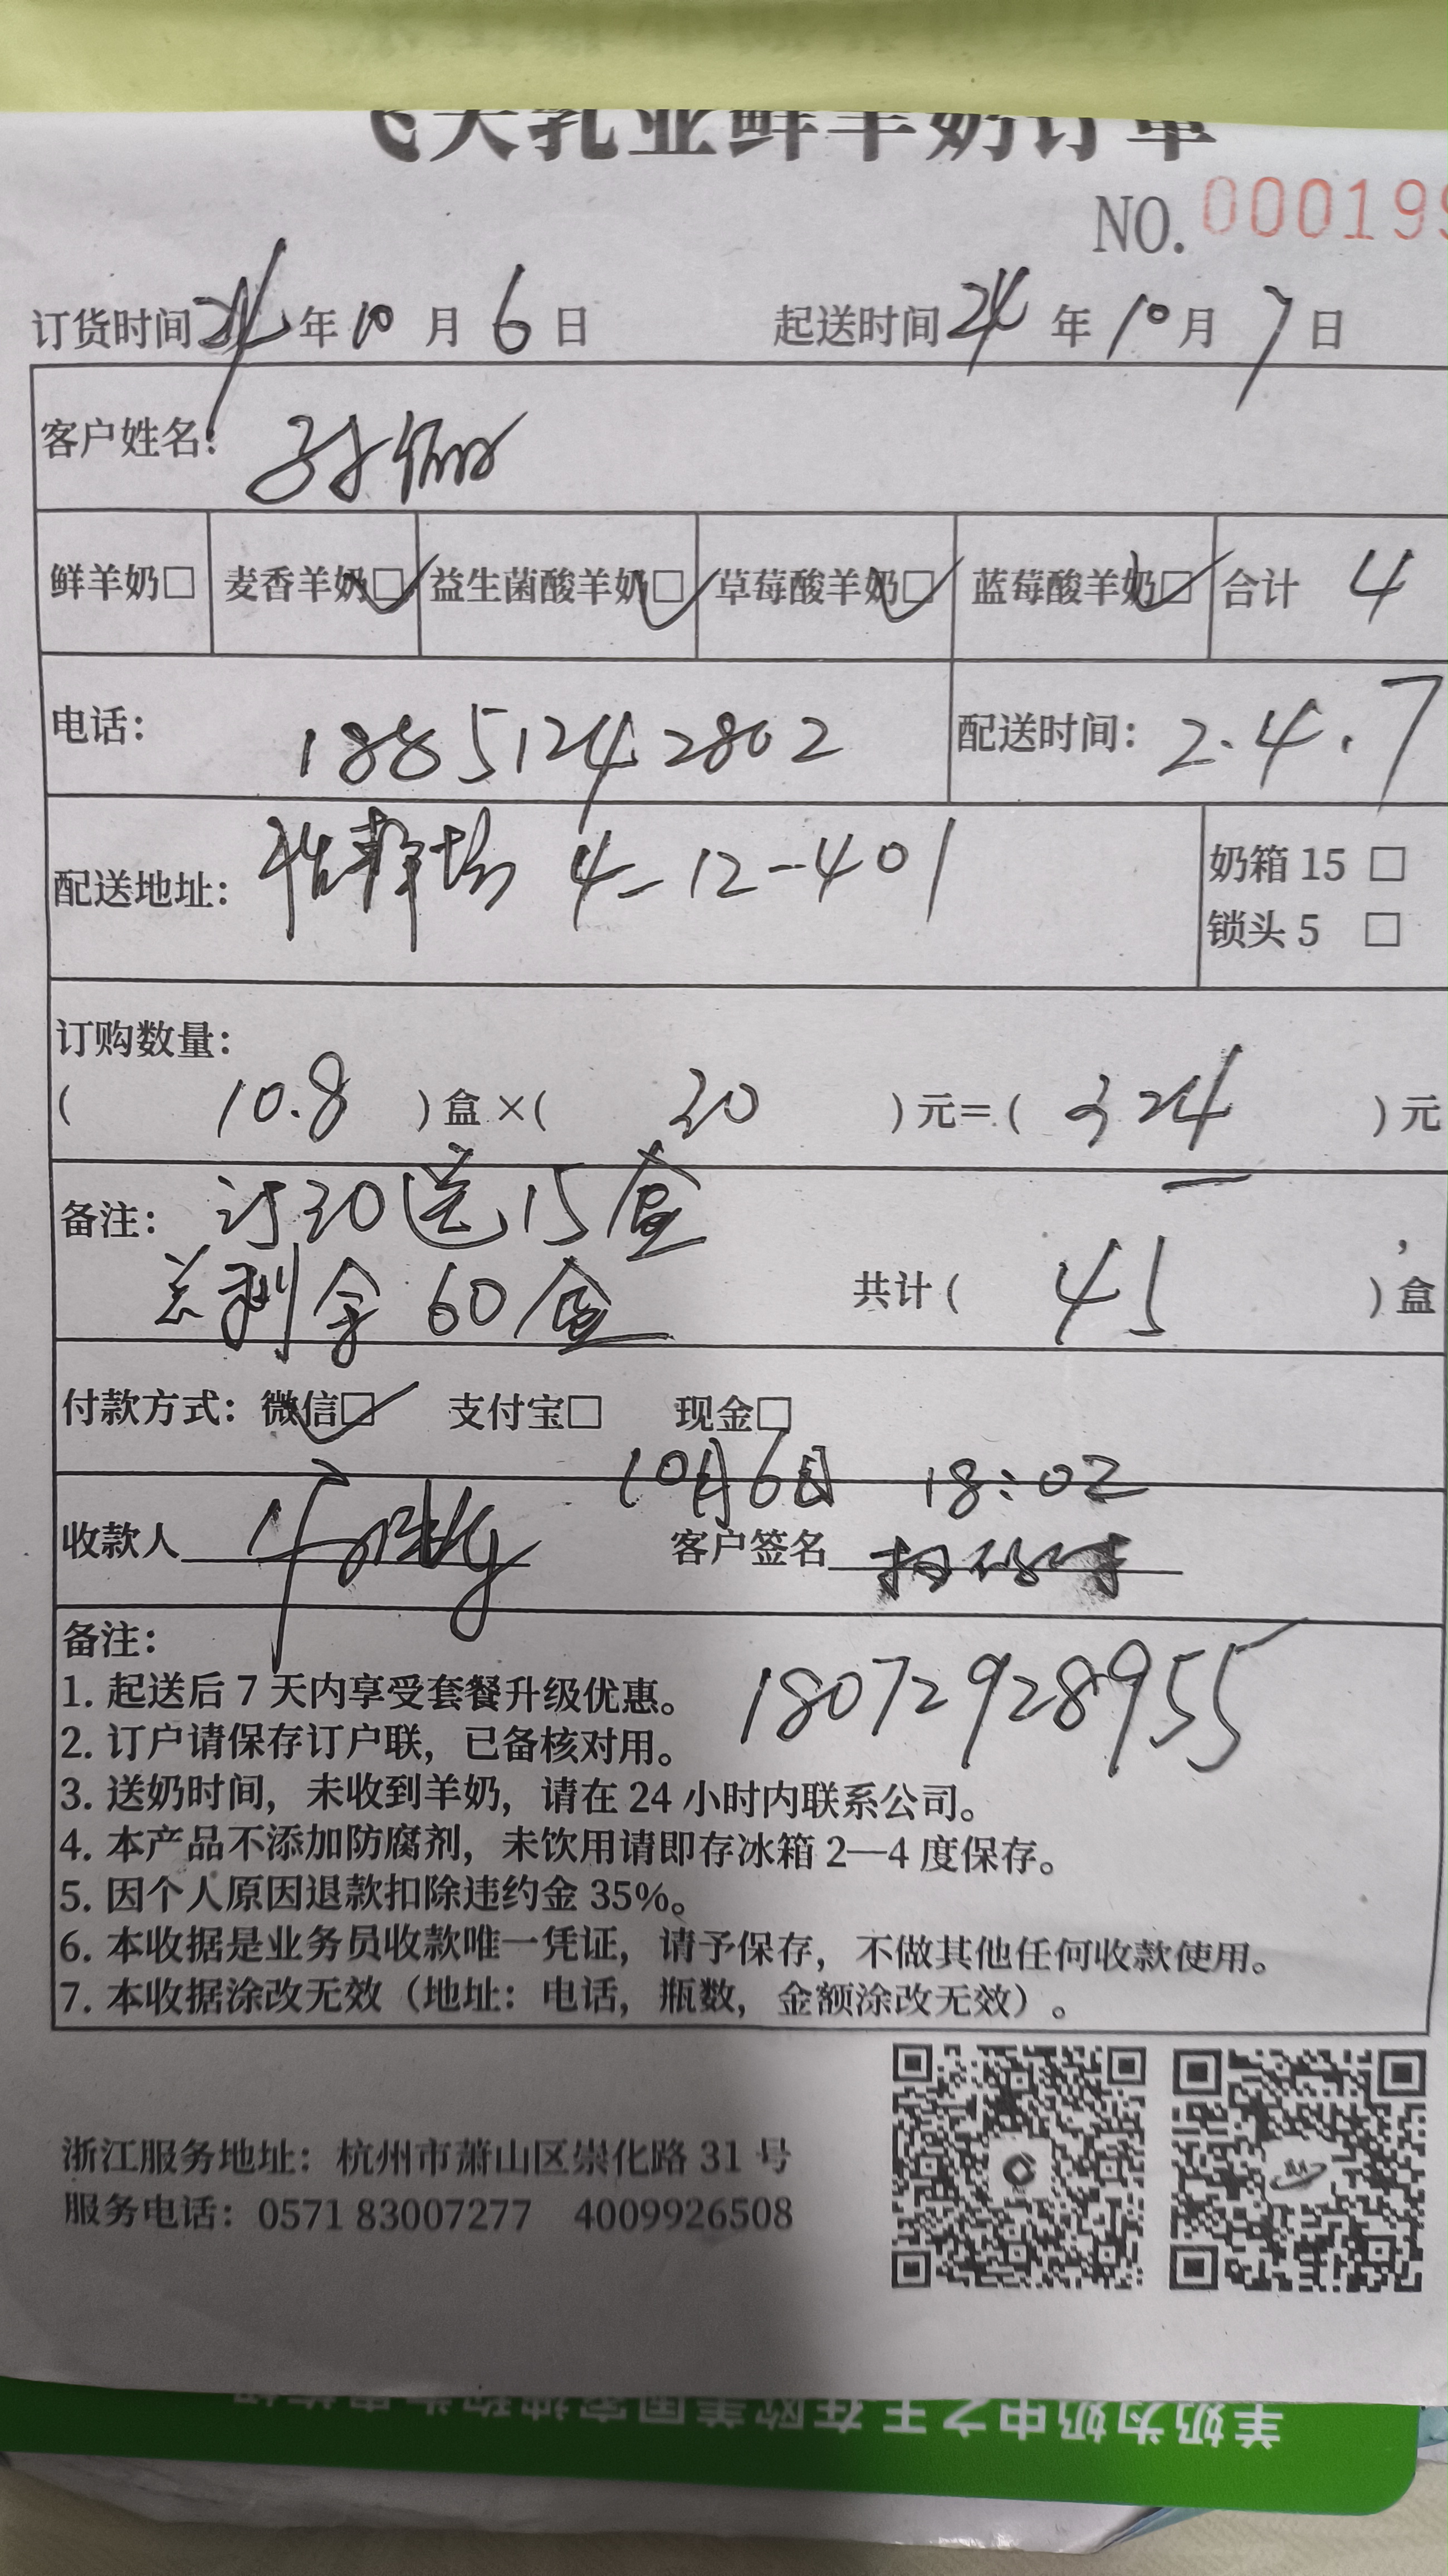 飞天乳业鲜羊奶订单
NO. 000199
订货时间 24 年 10 月 6 日 起送时间 24 年 10 月 7 日
客户姓名: 孙俪
鲜羊奶□ 麦香羊奶□✓ 益生菌酸羊奶□✓ 草莓酸羊奶□✓ 蓝莓酸羊奶□✓ 合计 4
电话: 18851242802 配送时间: 2.4.7
配送地址: 4-12-401 奶箱 15 □
锁头 5 □
订购数量:
( 10.8 ) 盒 ×( 30 ) 元=( 324 ) 元
备注: 订30送15盒
总剩余60盒 共计( 45 ) 盒
付款方式: 微信□✓ 支付宝□ 现金□
10月6日 18:02
收款人 客户签名
备注:
1. 起送后 7 天内享受套餐升级优惠。 18072928955
2. 订户请保存订户联，已备核对用。
3. 送奶时间，未收到羊奶，请在 24 小时内联系公司。
4. 本产品不添加防腐剂，未饮用请即存冰箱 2—4 度保存。
5. 因个人原因退款扣除违约金 35%。
6. 本收据是业务员收款唯一凭证，请予保存，不做其他任何收款使用。
7. 本收据涂改无效（地址：电话，瓶数，金额涂改无效）。
浙江服务地址：杭州市萧山区崇化路 31 号
服务电话：0571 83007277 4009926508
羊奶为奶中之王在欧美国家被称为